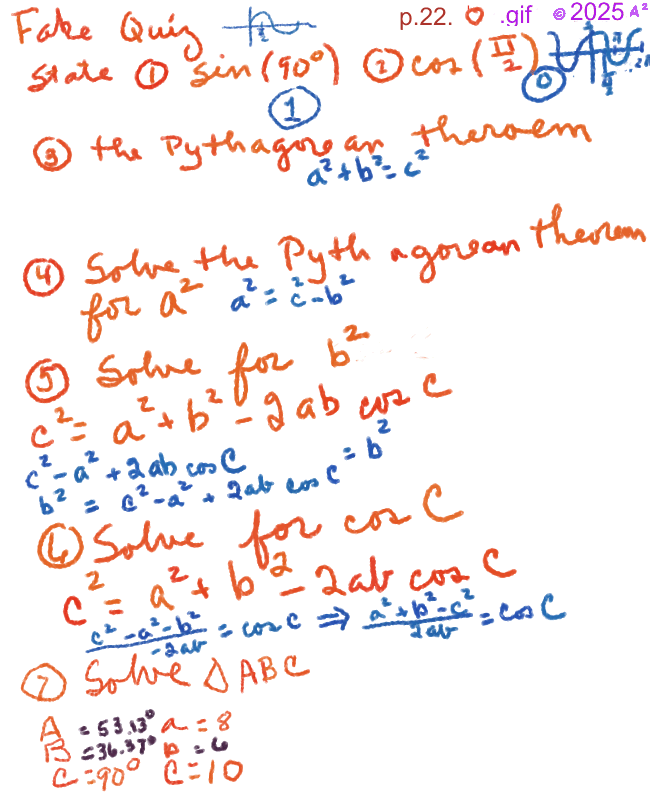 Fake Quiz p.22. .gif © 2025 A²
state ① sin(90°) ② cos(π/2)
1 0
③ the Pythagorean theroem
a² + b² = c²
④ Solve the Pythagorean theorem
for a² a² = c² - b²
⑤ Solve for b²
c² = a² + b² - 2ab cos C
c² - a² + 2ab cos C = b²
b² = c² - a² + 2ab cos C
⑥ Solve for cos C
c² = a² + b² - 2ab cos C
(c² - a² - b²)/(-2ab) = cos C ⇒ (a² + b² - c²)/(2ab) = cos C
⑦ Solve △ABC
A = 53.13° a = 8
B = 36.37° b = 6
C = 90° C = 10